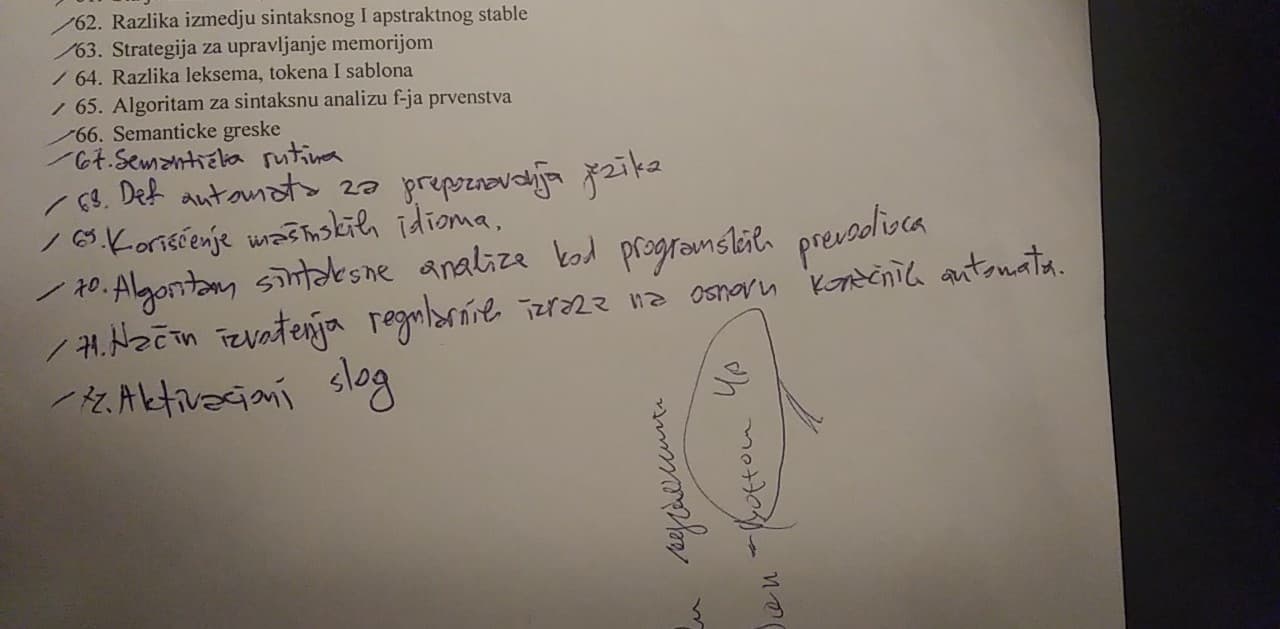 62. Razlika izmedju sintaksnog I apstraktnog stable
63. Strategija za upravljanje memorijom
64. Razlika leksema, tokena I sablona
65. Algoritam za sintaksnu analizu f-ja prvenstva
66. Semanticke greske
67. Semantička rutina
68. Def automata za prepoznavanja jezika
69. Korišćenje mašinskih idioma.
70. Algoritam sintaksne analize kod programskih prevodioca
71. Način izvođenja regularnih izraza na osnovu konačnih automata.
72. Aktivacioni slog
bottom up